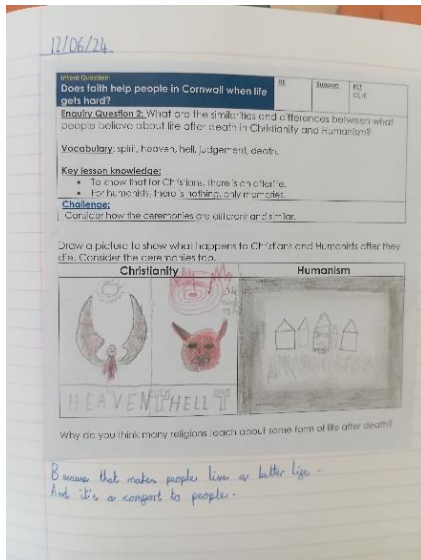 12/06/24
Intent Question:
Does faith help people in Cornwall when life
gets hard?
RE
Support
Enquiry Question 2: What are the similarities and differences between what
people believe about life after death in Christianity and Humanism?
Vocabulary: spirit, heaven, hell, judgement, death.
Key lesson knowledge:
• To know that for Christians, there is an afterlife.
• For humanists, there is nothing, only memories.
Challenge:
Consider how the ceremonies are different and similar.
Draw a picture to show what happens to Christians and Humanists after they
die. Consider the ceremonies too.
Christianity
Humanism
HEAVEN
HELL
Why do you think many religions teach about some form of life after death?
Because that makes people live a better life.
And it's a comfort to people.